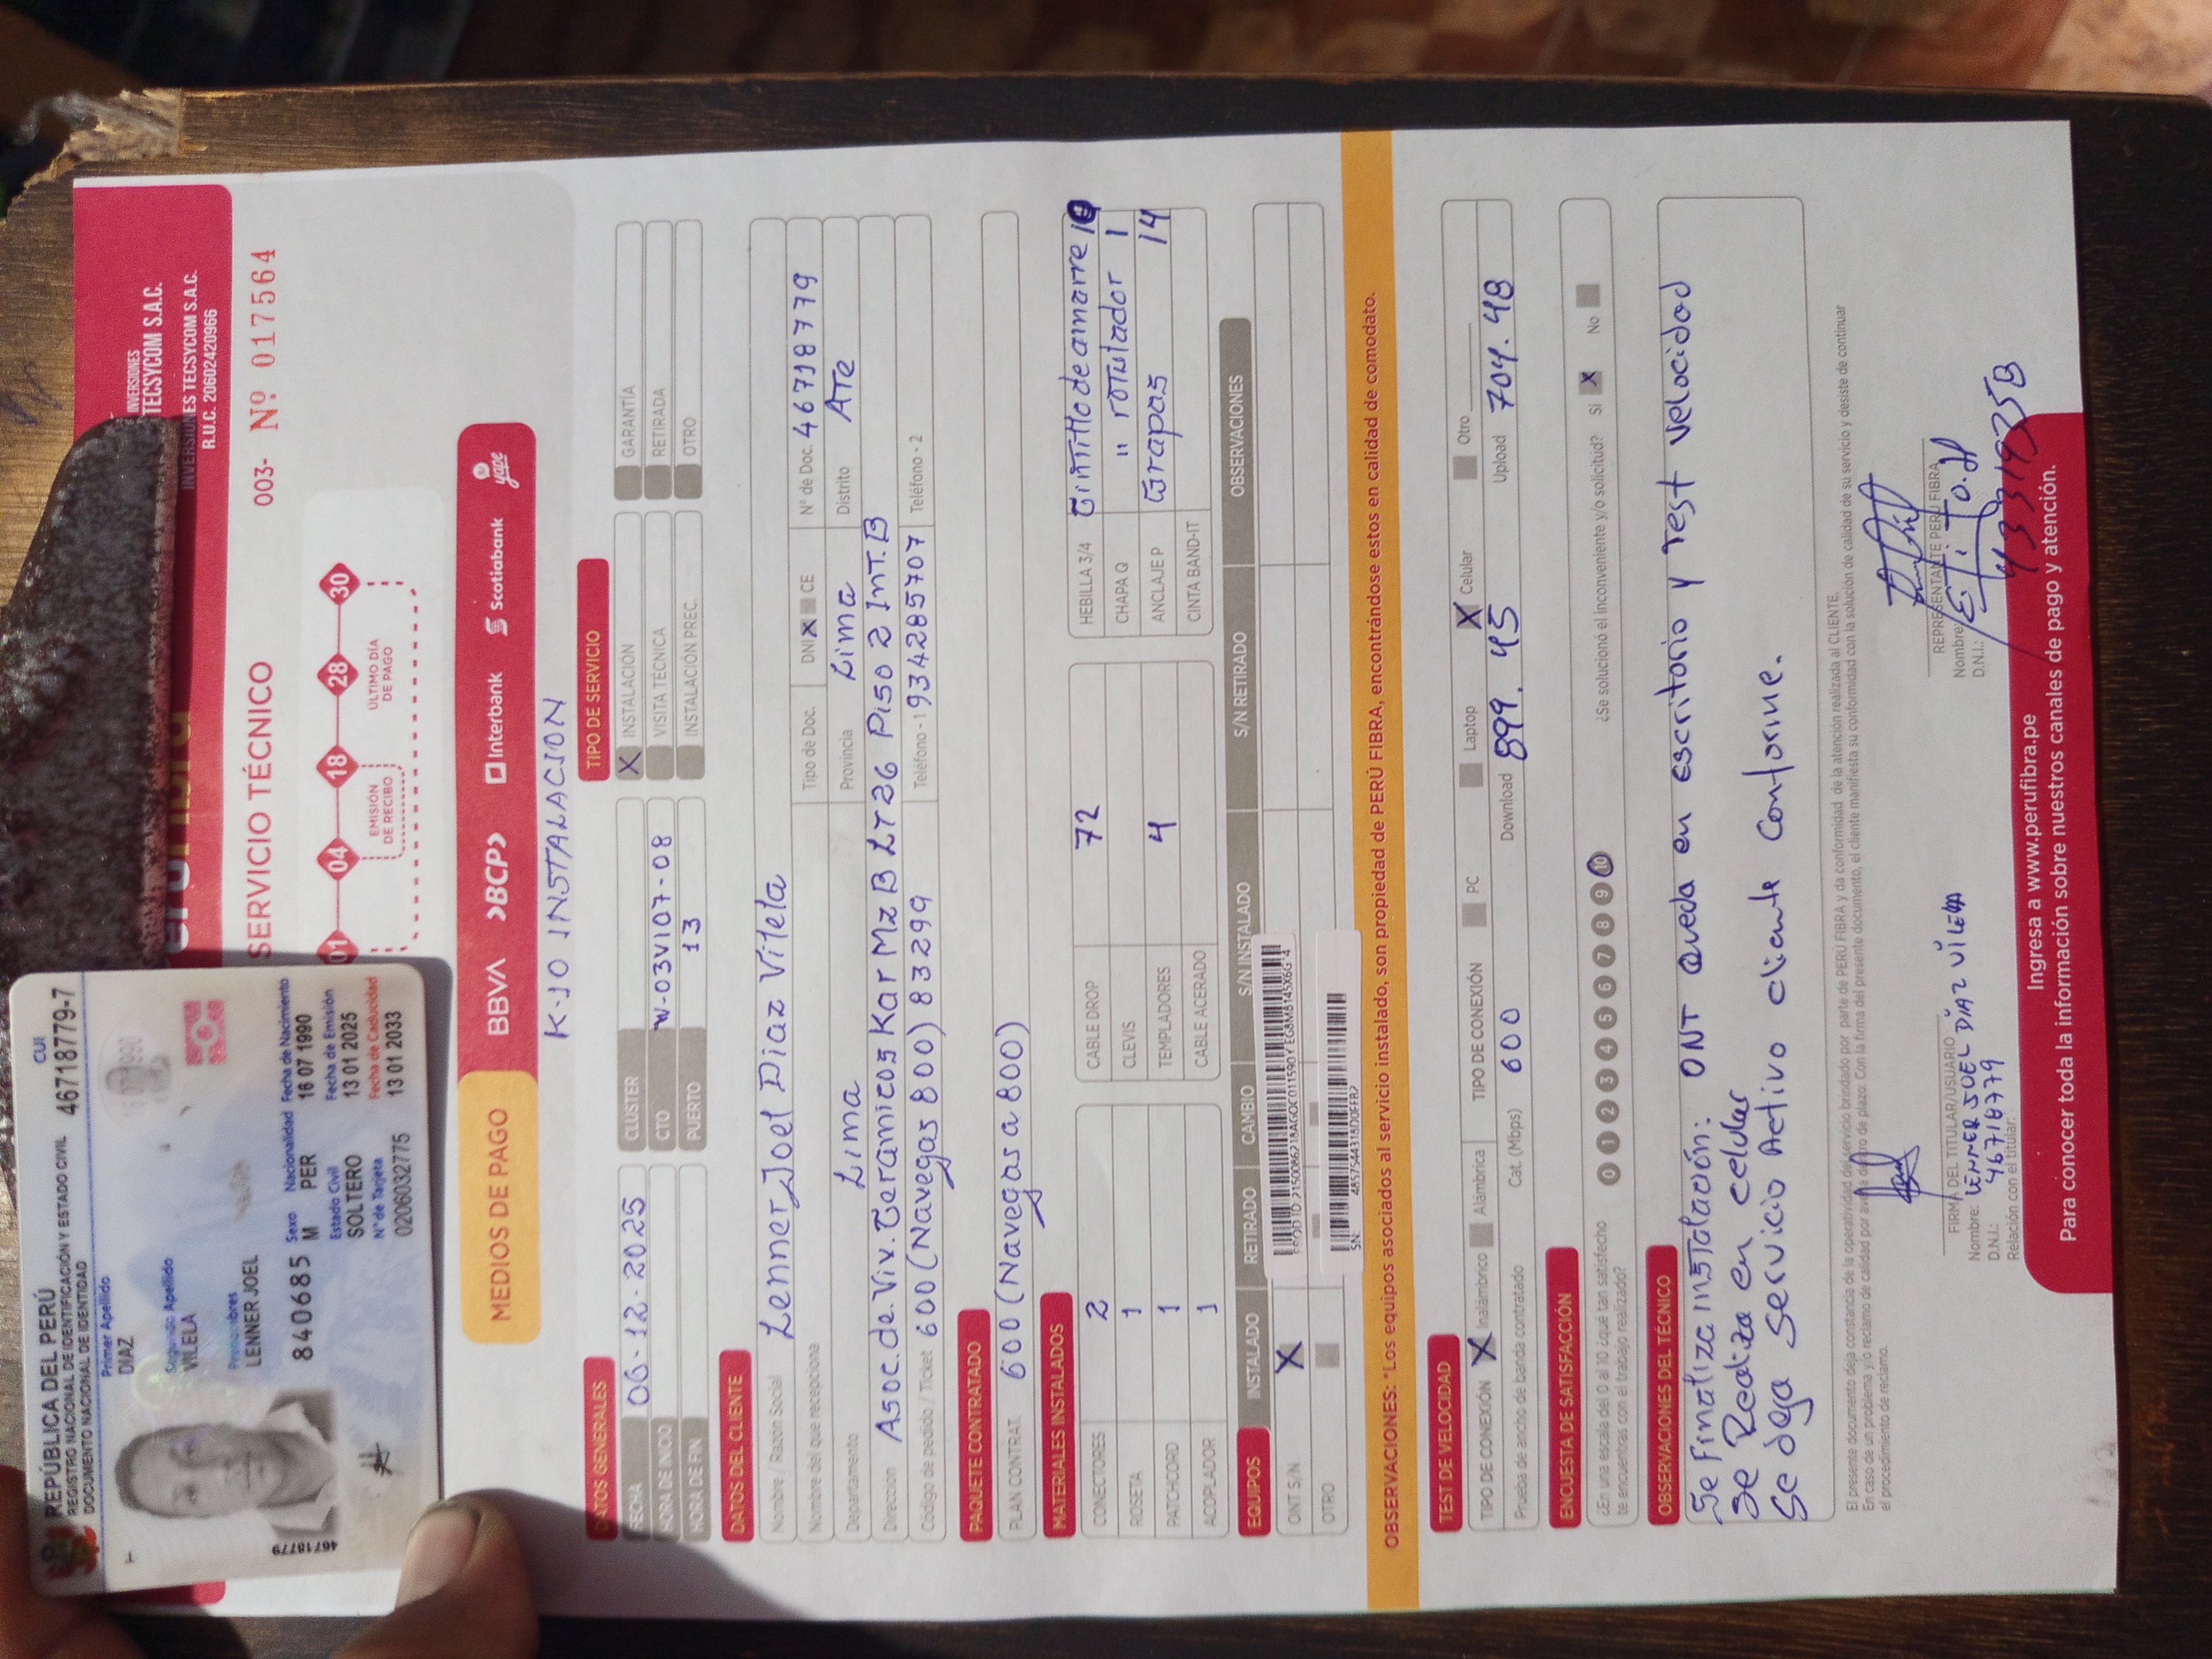 REPÚBLICA DEL PERÚ
REGISTRO NACIONAL DE IDENTIFICACIÓN Y ESTADO CIVIL
DOCUMENTO NACIONAL DE IDENTIDAD
CUI
46718779-7
Primer Apellido
DIAZ
Segundo Apellido
VILELA
Prenombres
LENNER JOEL
840685
Sexo Nacionalidad Fecha de Nacimiento
M PER 16 07 1990
Estado Civil Fecha de Emisión
SOLTERO 13 01 2025
N° de Tarjeta Fecha de Caducidad
0206032775 13 01 2033
46718779
INVERSIONES
TECSYCOM S.A.C.
INVERSIONES TECSYCOM S.A.C.
R.U.C. 20602420966
SERVICIO TÉCNICO
003- Nº 017564
01 04 18 28 30
EMISIÓN DE RECIBO
ÚLTIMO DÍA DE PAGO
MEDIOS DE PAGO
BBVA >BCP> Interbank Scotiabank yape
K-10 INSTALACION
DATOS GENERALES
TIPO DE SERVICIO
FECHA 06-12-2025
CLUSTER
X INSTALACIÓN
GARANTÍA
HORA DE INICIO
CTO W-03VI07-08
VISITA TÉCNICA
RETIRADA
HORA DE FIN
PUERTO 13
INSTALACIÓN PREC.
OTRO
DATOS DEL CLIENTE
Nombre / Razón Social Lenner Joel Diaz Vilela
Nombre del que recepciona
Tipo de Doc. DNI X CE
N° de Doc. 46718779
Departamento Lima
Provincia Lima
Distrito ATe
Dirección Asoc. de. Viv. Ceramicos Kar Mz B LT 26 Piso 2 InT. B
Código de pedido / Ticket 600 (Navegas 800) 83299
Teléfono - 1 934285707
Teléfono - 2
PAQUETE CONTRATADO
PLAN CONTRAT. 600 (Navegas a 800)
MATERIALES INSTALADOS
CONECTORES 2
CABLE DROP 72
HEBILLA 3/4 Cintillo de amarre
ROSETA 1
CLEVIS
CHAPA Q " roTulador 1
PATCHCORD 1
TEMPLADORES 4
ANCLAJE P Grapas 14
ACOPLADOR 1
CABLE ACERADO
CINTA BAND-IT
EQUIPOS INSTALADO RETIRADO CAMBIO S/N INSTALADO S/N RETIRADO OBSERVACIONES
ONT S/N X
OTRO
SN:
OBSERVACIONES: "Los equipos asociados al servicio instalado, son propiedad de PERÚ FIBRA, encontrándose estos en calidad de comodato.
TEST DE VELOCIDAD
TIPO DE CONEXIÓN X Inalámbrico Alámbrica
TIPO DE CONEXIÓN PC Laptop X Celular Otro
Prueba de ancho de banda contratado
Cat. (Mbps) 600
Download 899.45
Upload 704.48
ENCUESTA DE SATISFACCIÓN
¿En una escala del 0 al 10 ¿qué tan satisfecho
te encuentras con el trabajo realizado?
0 1 2 3 4 5 6 7 8 9 10
¿Se solucionó el inconveniente y/o solicitud? SI X No
OBSERVACIONES DEL TÉCNICO
Se Finaliza insTalación: ONT Queda en escritorio y Test velocidad
Se Realiza en celular
Se deja servicio Activo cliente Conforme.
El presente documento deja constancia de la operatividad del servicio brindado por parte de PERÚ FIBRA y da conformidad de la atención realizada al CLIENTE.
el procedimiento de reclamo.
FIRMA DEL TITULAR/USUARIO
Nombre: LENNER JOEL DÍAZ VILELA
D.N.I.: 46718779
Relación con el titular:
REPRESENTANTE PERÚ FIBRA
Nombre:
D.N.I.:
Ingresa a www.perufibra.pe
Para conocer toda la información sobre nuestros canales de pago y atención.